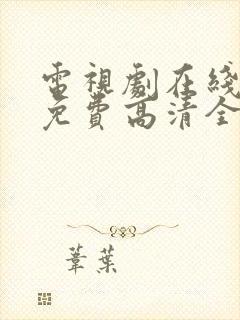 電視劇在綫
免費高清全
葦葉